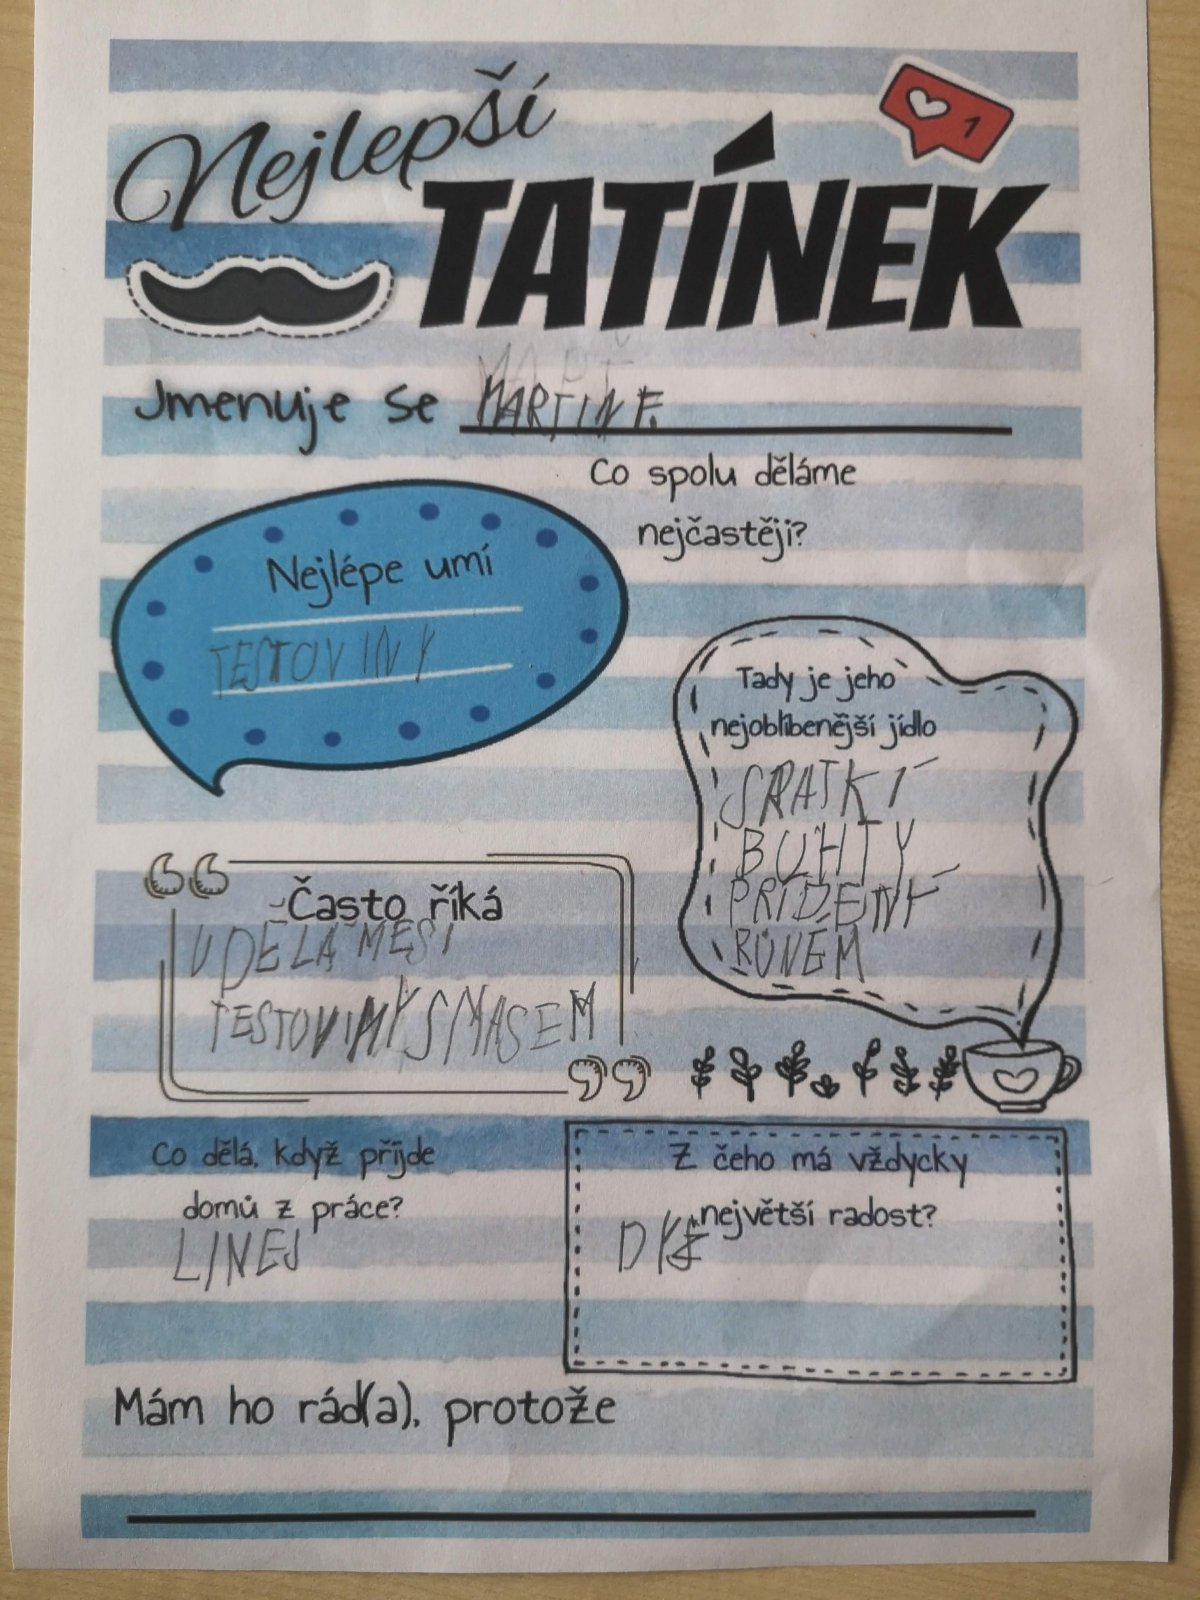 Nejlepší
TATÍNEK
1
MAPĚ
Jmenuje se MARTIN F.
Co spolu děláme
nejčastěji?
Nejlépe umí
TESTOVINY
Tady je jeho
nejoblíbenější jídlo
SRATKÍ
BUHTY
PRIDENÉ
RŮNÉM
Často říká
UDĚLÁMESI
TESTOVINY SMASEM
Co dělá, když příjde
domů z práce?
LINEJ
Z čeho má vždycky
největší radost?
Mám ho rád(a), protože